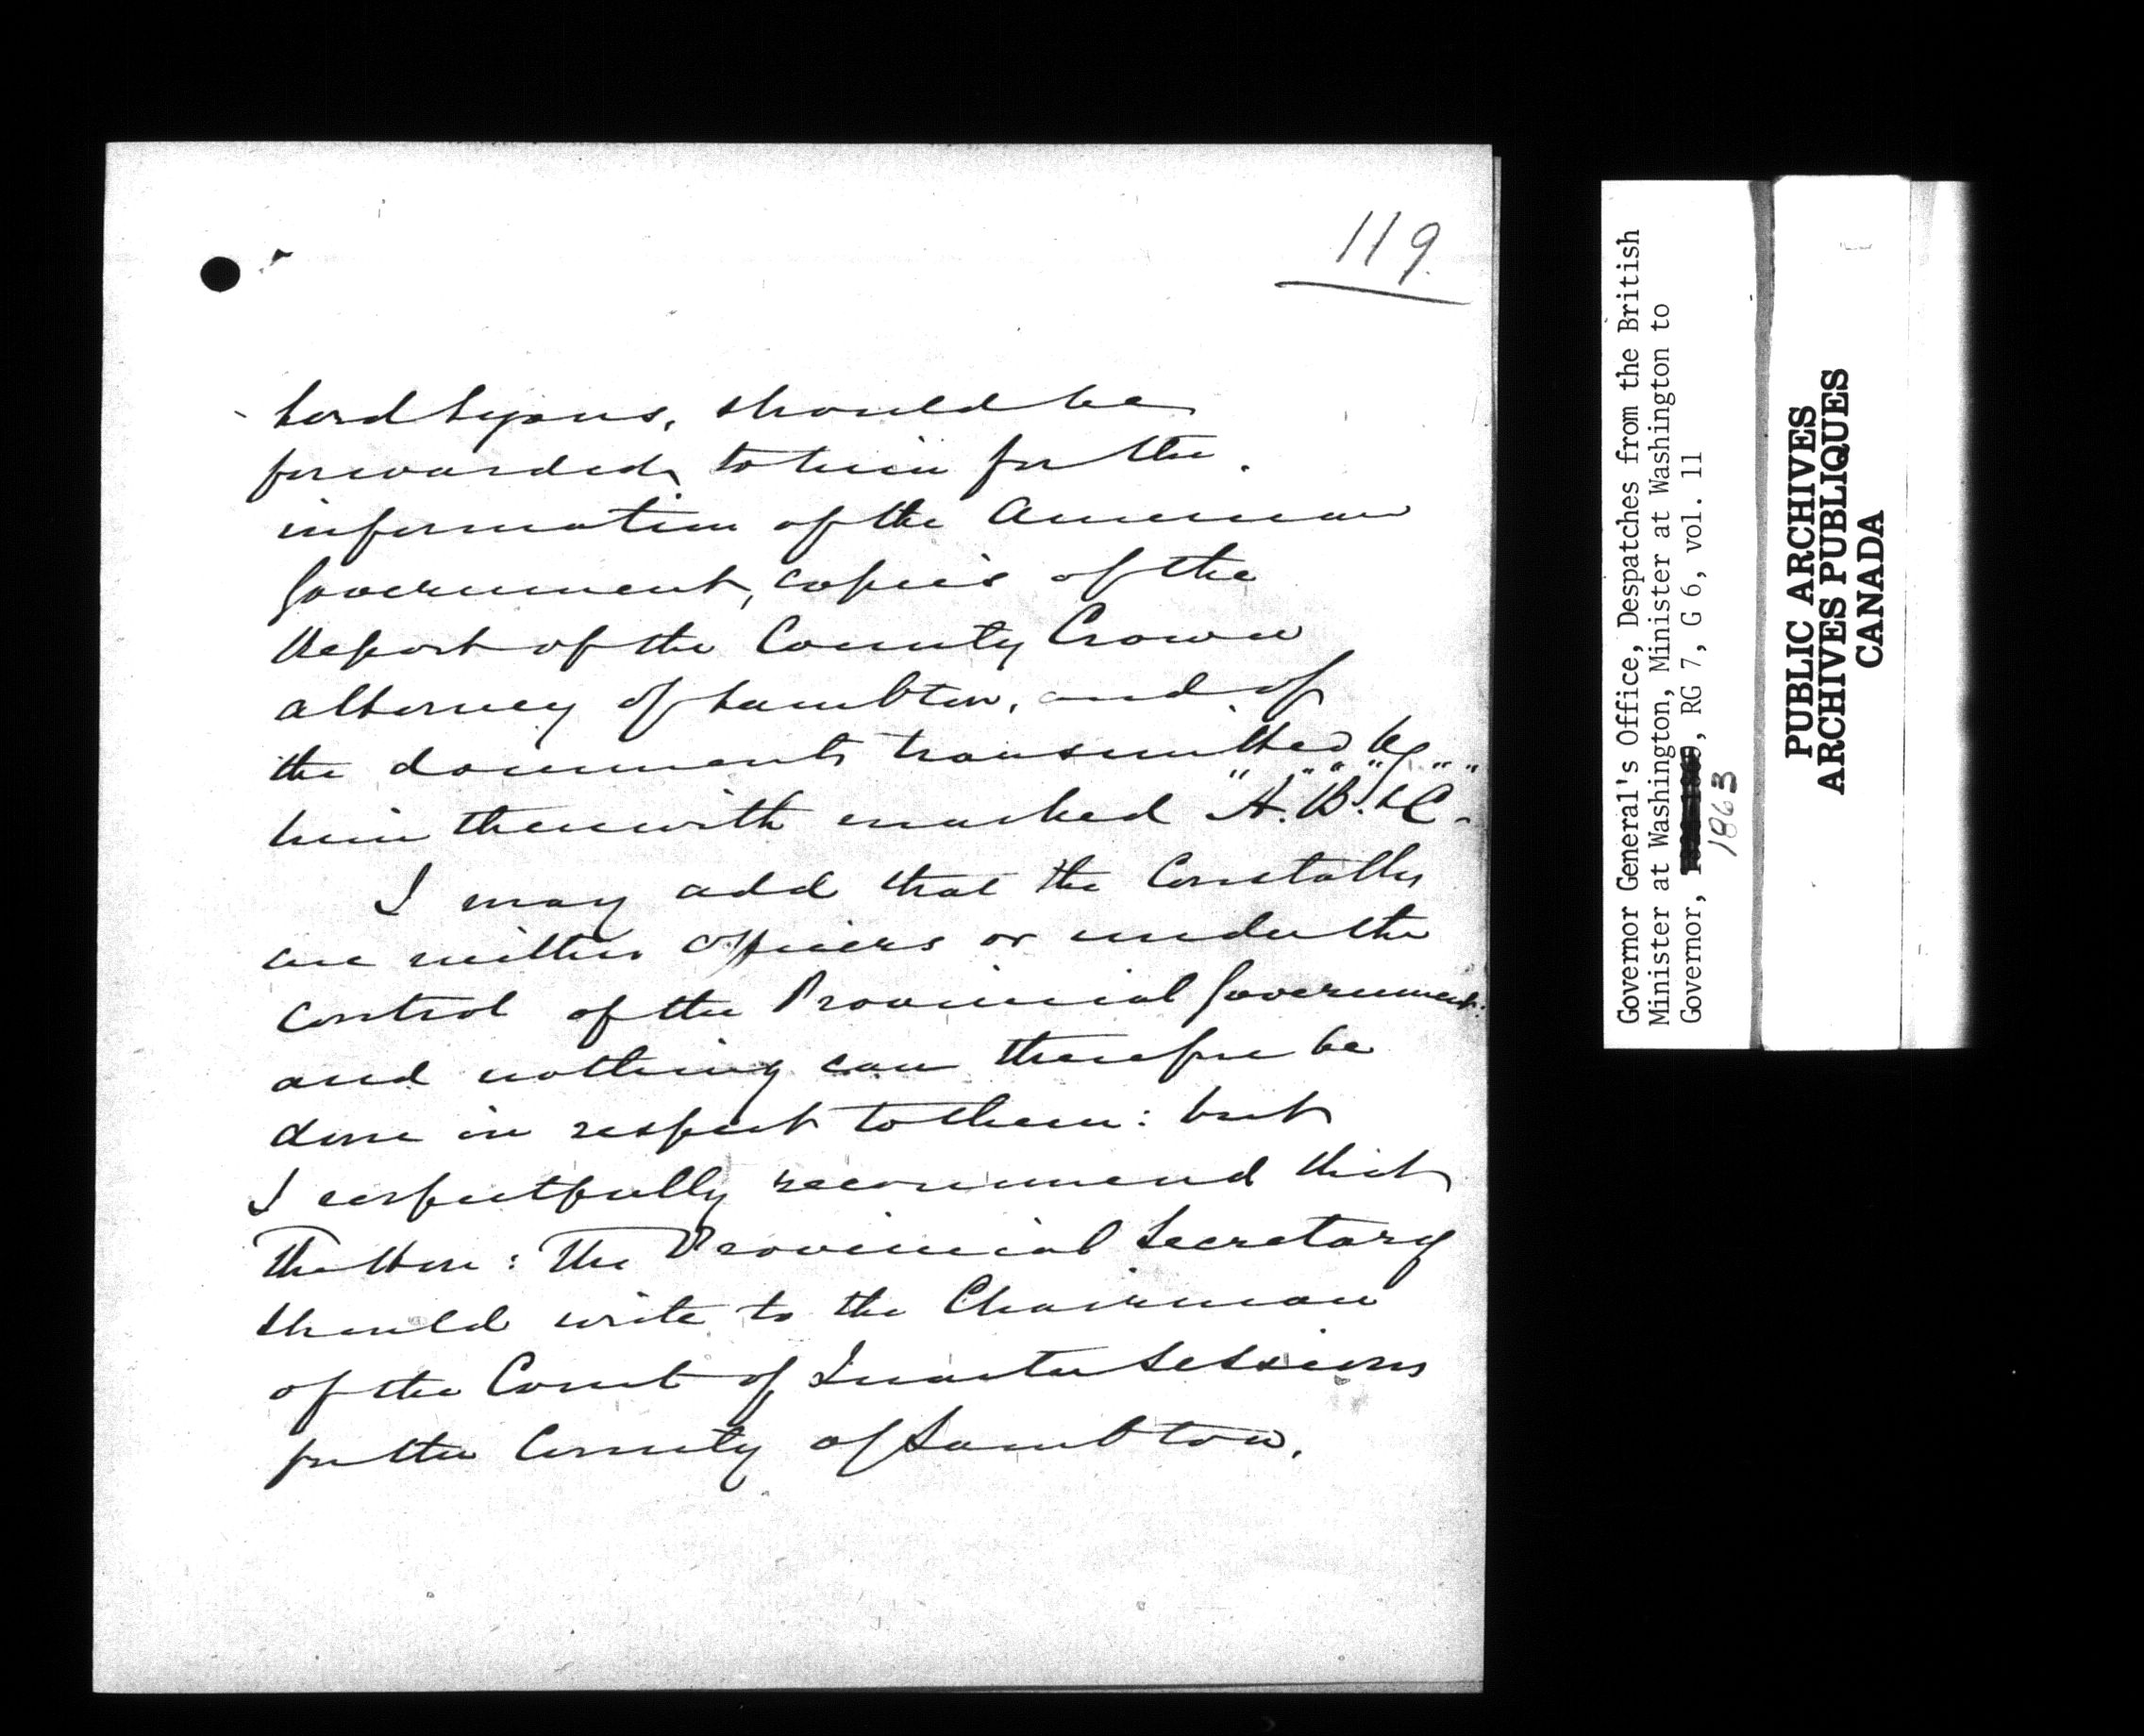 119.
Lord Lyons, should be
forwarded, to him for the
information of the American
Government, copies of the
Report of the County Crown
attorney of Lambton, and of
the documents transmitted by
him therewith marked "A." "B." & "C."
I may add that the Constables
are neither officers or under the
control of the Provincial Government:
and nothing can therefore be
done in respect to them: but
I respectfully recommend that
The Hon: The Provincial Secretary
should write to the Chairman
of the Court of Quarter Sessions
for the County of Lambton.
Governor General's Office, Despatches from the British
Minister at Washington, Minister at Washington to
Governor, , RG 7, G 6, vol. 11
1863
PUBLIC ARCHIVES
ARCHIVES PUBLIQUES
CANADA